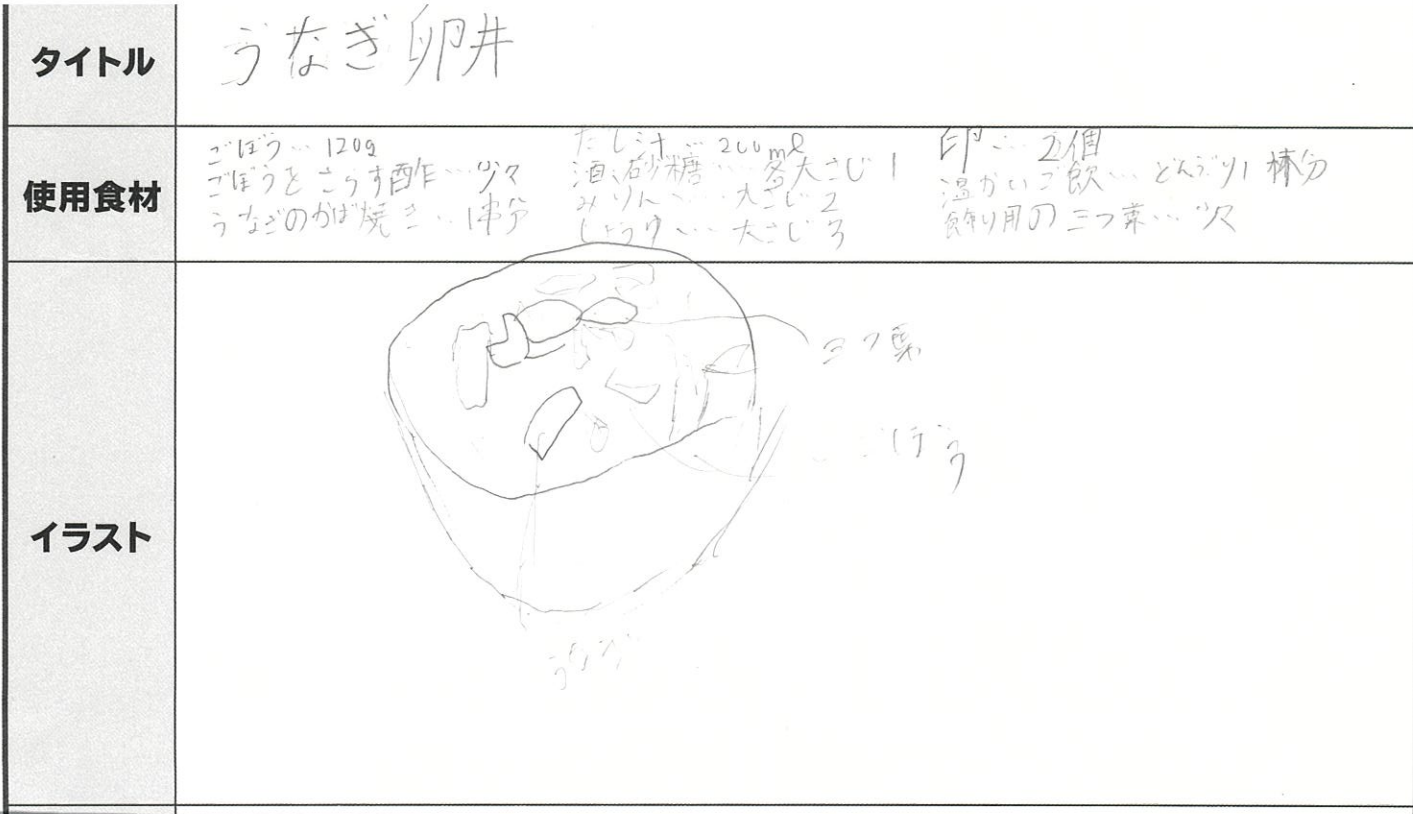 タイトル
うなぎ卵丼
使用食材
ごぼう… 120g
ごぼうをさらす酢…少々
うなぎのかば焼き…1串分
だし汁… 200ml
酒、砂糖… 各大さじ1
みりん… 大さじ2
しょうゆ… 大さじ3
卵… 2個
温かいご飯… どんぶり1杯分
飾り用の三つ葉… 少々
イラスト
三つ葉
ごぼう
うなぎ